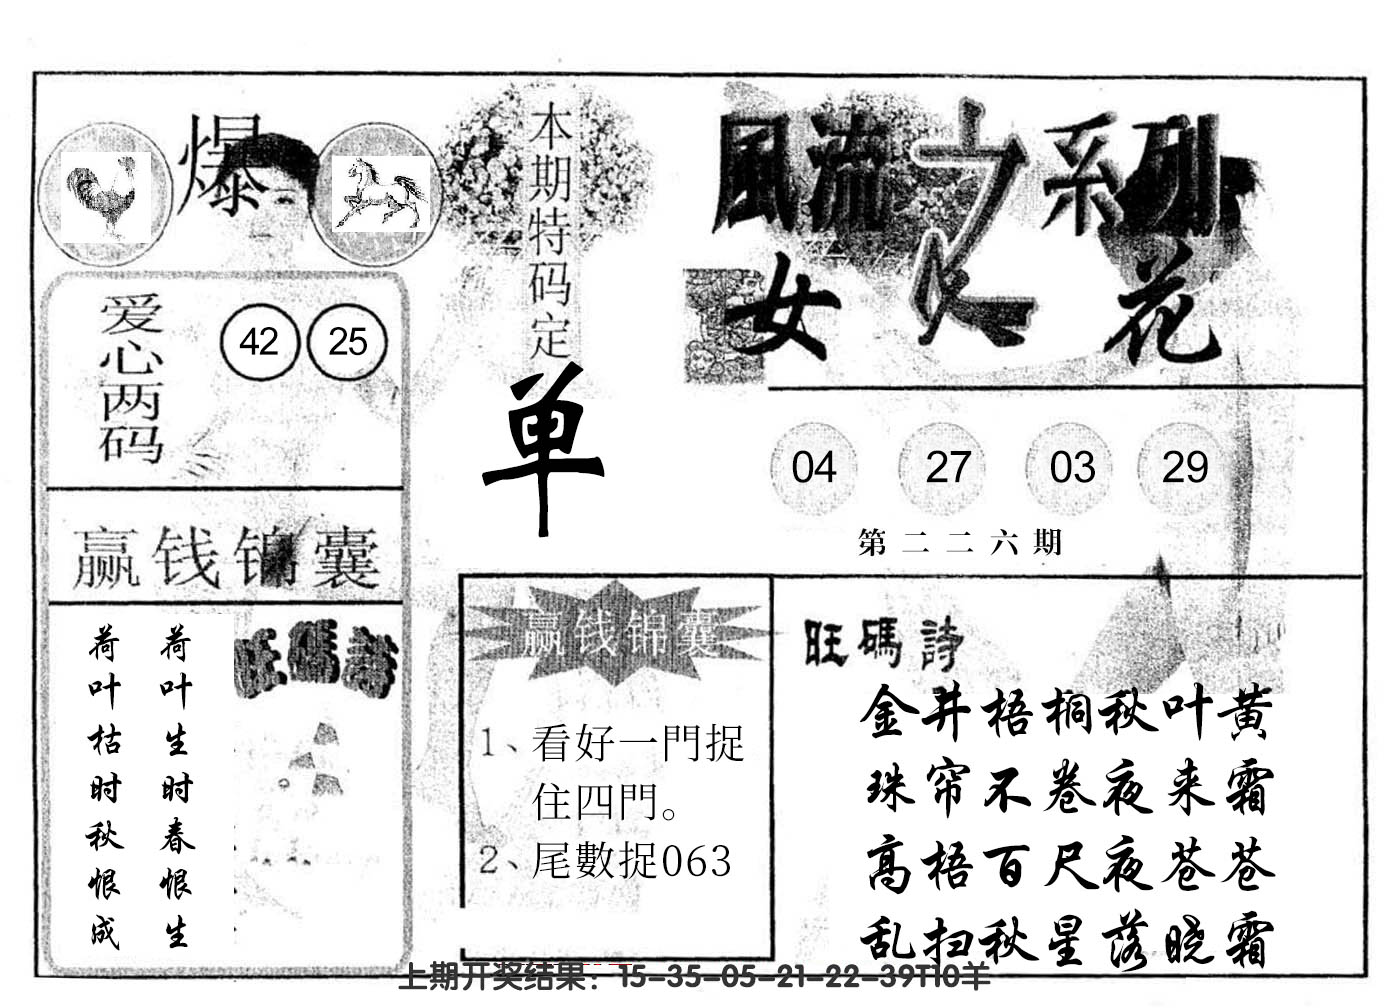 爆
本期特码定
单
風流之系列
女人花
爱心两码
42 25
04 27 03 29
第二二六期
赢钱锦囊
荷叶生时春恨生
荷叶枯时秋恨成
旺碼詩
赢钱锦囊
1、看好一門捉
住四門。
2、尾數捉063
旺碼詩
金井梧桐秋叶黄
珠帘不卷夜来霜
高梧百尺夜苍苍
乱扫秋星落晓霜
上期开奖结果：15-35-05-21-22-39T10羊